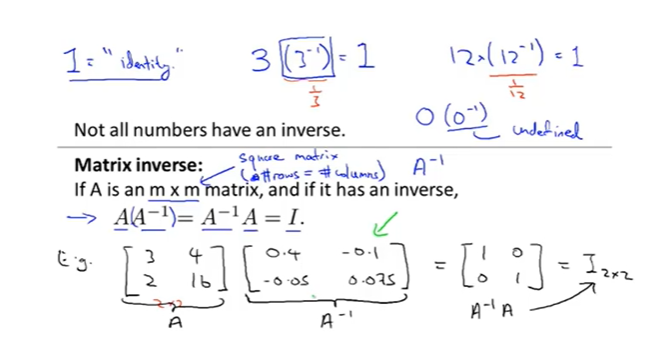 1 = "identity."
3 (3⁻¹) = 1
1/3
12 × (12⁻¹) = 1
1/12
0 (0⁻¹)
undefined
Not all numbers have an inverse.
Matrix inverse:
square matrix
(#rows = #columns)
A⁻¹
If A is an m x m matrix, and if it has an inverse,
→ A(A⁻¹) = A⁻¹A = I.
E.g. [3 4; 2 16] [0.4 -0.1; -0.05 0.075] = [1 0; 0 1] = I 2×2
2×2
A
A⁻¹
A⁻¹A